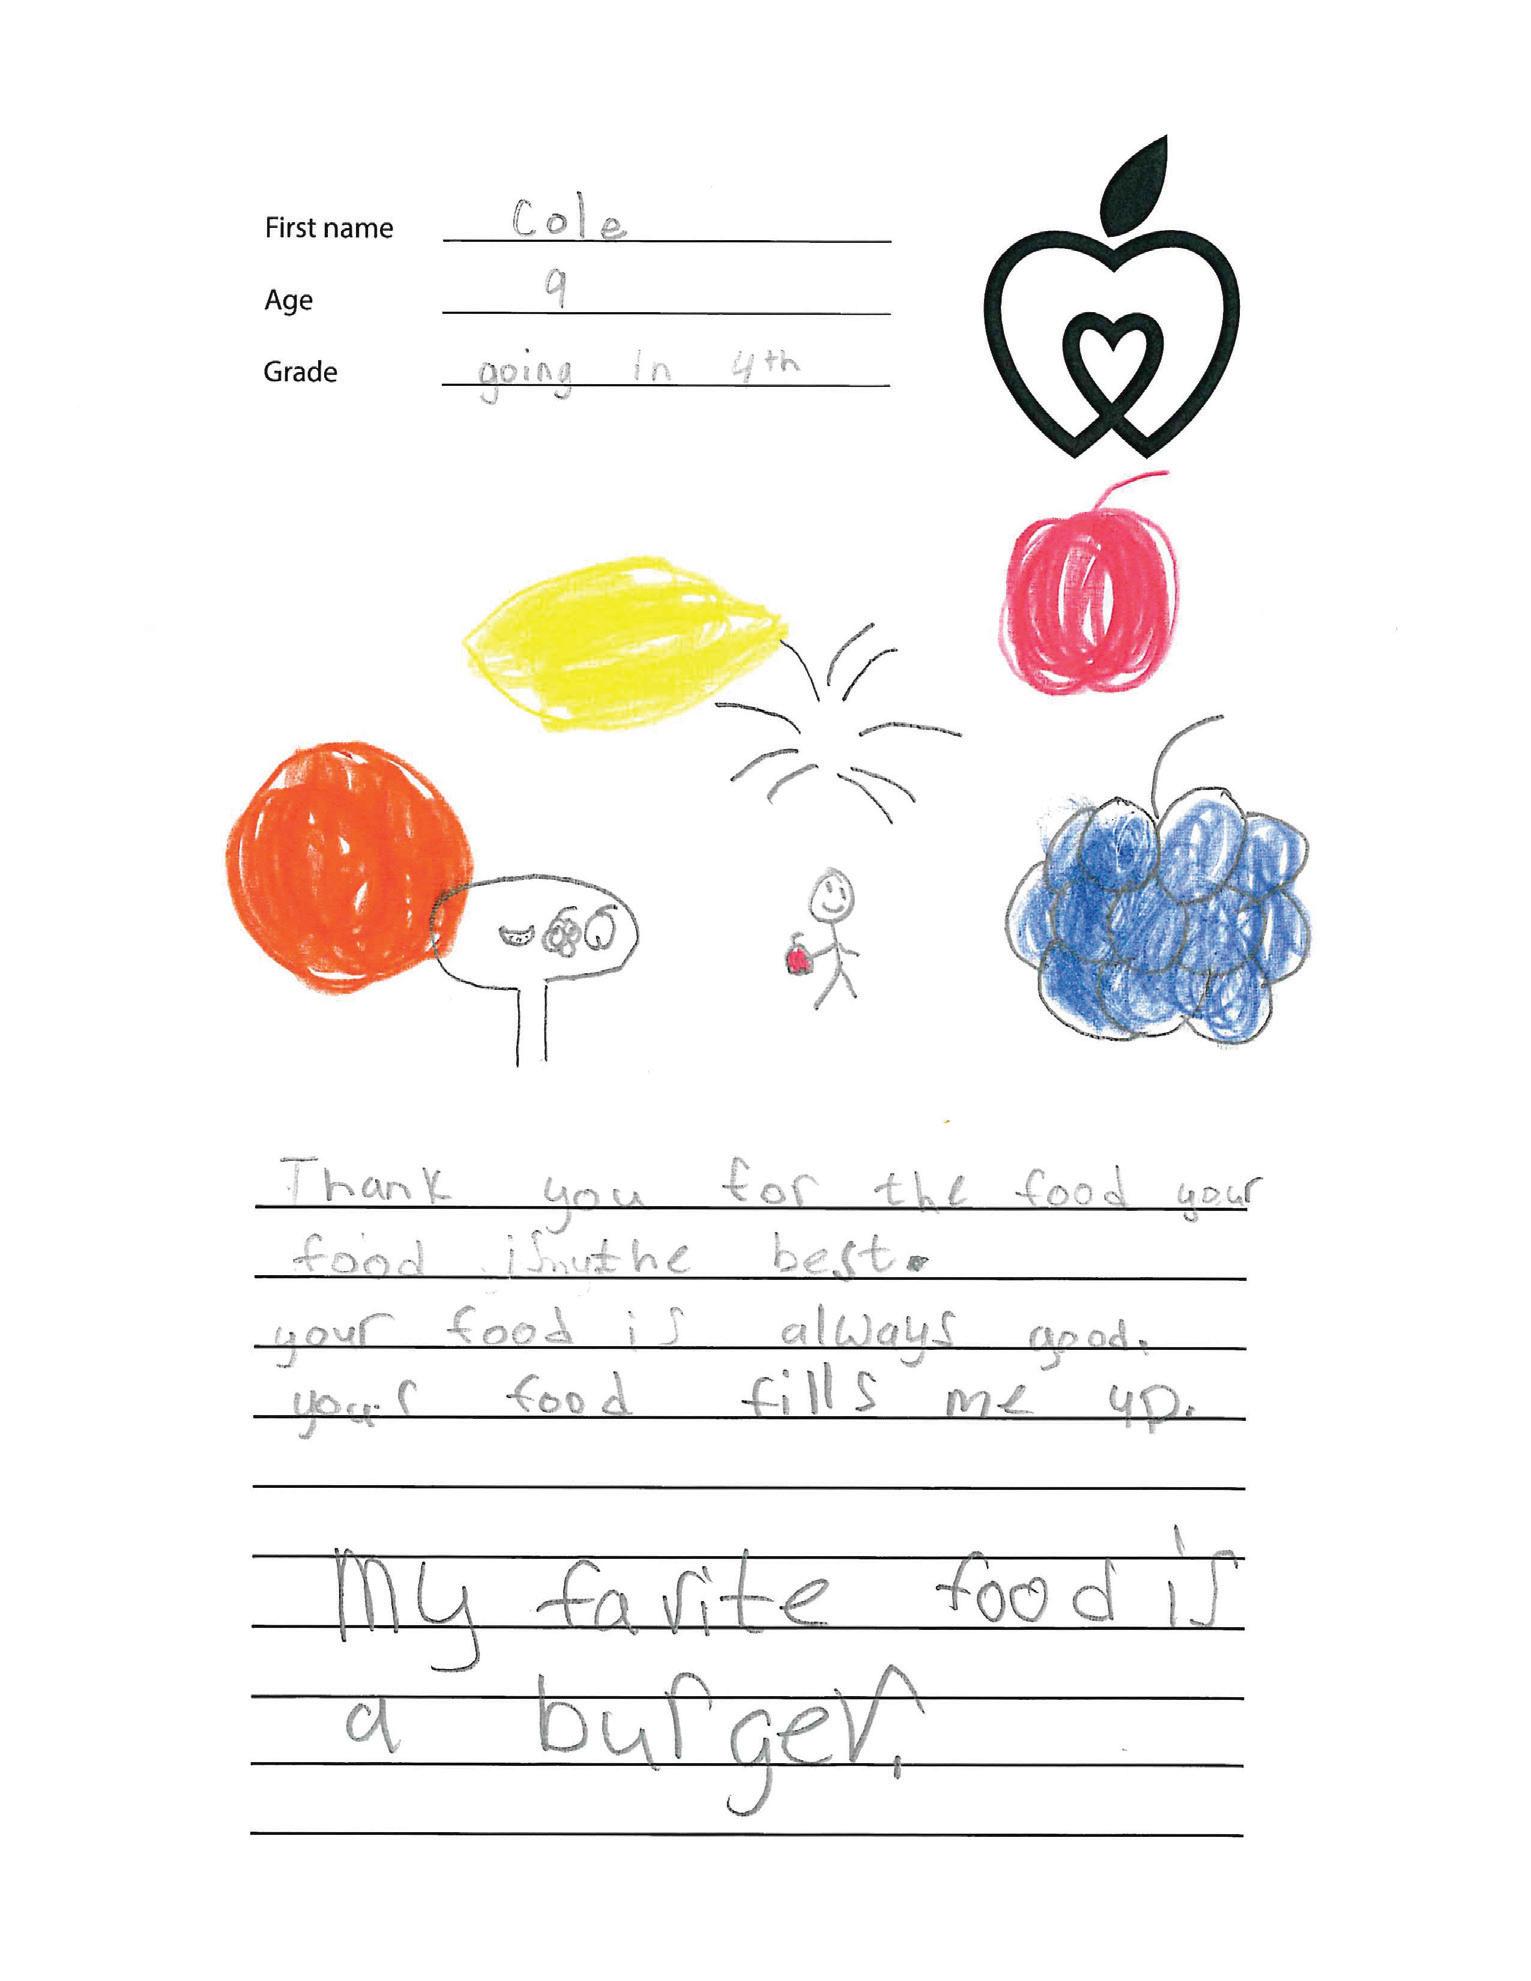 First name Cole
Age 9
Grade going in 4th
Thank you for the food your
food is the best.
your food is always good.
your food fills me up.
My favrite food is
a burger.